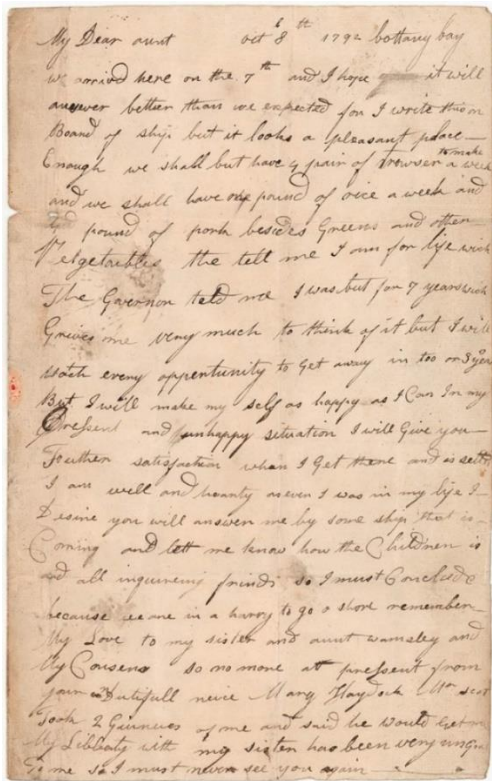 My Dear aunt oct 8 th 1792 bottany bay
we arrivd here on the 7th and I hope it will
answer better than we expected for I write this on
Board of ship but it looks a pleasant place
Enough we shall but have 4 pair of trowser to make a week
and we shall have one pound of rice a week and
4 pound of pork besides Greens and other
Vegetaibles the tell me I am for life wich
The Governor teld me I was but for 7 years wich
Grives me very much to think of it but I will
Watch every oppertunity to Get away in too or 3 years
But I will make my self as happy as I Can In my
Pressent and unhappy situation I will Give you
Further satisfaction when I Get there and is settld
I am well and hearty as ever I was in my life I
Desire you will answer me by some ship that is
Coming and lett me know how the Children is
and all inquireing frinds so I must Conclude
because we are in a harry to go a shore remember
My Love to my sister and aunt wamsley and
My Cousens so no more at pressent from
your Dutifull neice Mary Haydock Mr scot
Took 2 Guineves of me and said he would Get me
My Libbaty with my sister has been very ungood
To me so I must never see you again